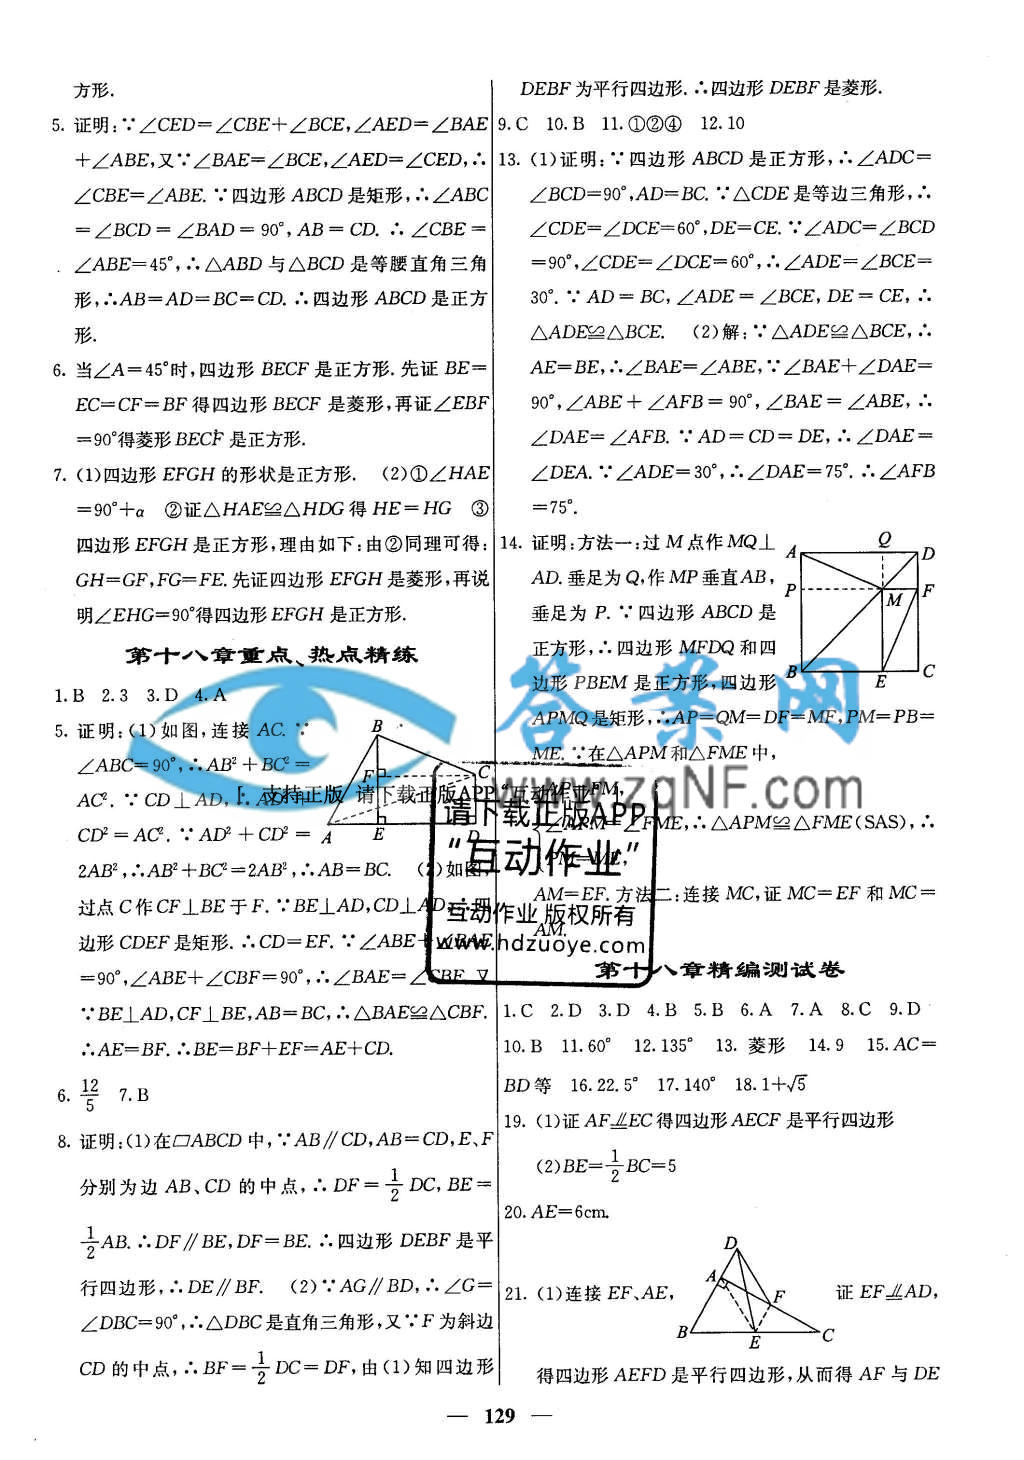 方形.
5. 证明:∵∠CED=∠CBE+∠BCE,∠AED=∠BAE
+∠ABE,又∵∠BAE=∠BCE,∠AED=∠CED,∴
∠CBE=∠ABE.∵四边形 ABCD 是矩形,∴∠ABC
=∠BCD=∠BAD=90°,AB=CD.∴∠CBE=
∠ABE=45°,∴△ABD 与△BCD 是等腰直角三角
形,∴AB=AD=BC=CD.∴四边形 ABCD 是正方
形.
6. 当∠A=45°时,四边形 BECF 是正方形.先证 BE=
EC=CF=BF 得四边形 BECF 是菱形,再证∠EBF
=90°得菱形 BECF 是正方形.
7. (1)四边形 EFGH 的形状是正方形. (2)①∠HAE
=90°+α ②证△HAE≌△HDG 得 HE=HG ③
四边形 EFGH 是正方形,理由如下:由②同理可得:
GH=GF,FG=FE.先证四边形 EFGH 是菱形,再说
明∠EHG=90°得四边形 EFGH 是正方形.
第十八章重点、热点精练
1.B 2.3 3.D 4.A
5. 证明:(1)如图,连接 AC.∵
∠ABC=90°,∴AB²+BC²=
AC².∵CD⊥AD,∴AD²+
CD²=AC².∵AD²+CD²=
2AB²,∴AB²+BC²=2AB²,∴AB=BC. (2)如图,
过点 C 作 CF⊥BE 于 F.∵BE⊥AD,CD⊥AD,∴四
边形 CDEF 是矩形.∴CD=EF.∵∠ABE+∠BAE
=90°,∠ABE+∠CBF=90°,∴∠BAE=∠CBF.又
∵BE⊥AD,CF⊥BE,AB=BC,∴△BAE≌△CBF.
∴AE=BF.∴BE=BF+EF=AE+CD.
B
F
C
A
E
D
6. 12/5 7.B
8. 证明:(1)在▱ABCD 中,∵AB∥CD,AB=CD,E、F
分别为边 AB、CD 的中点,∴DF=1/2 DC,BE=
1/2 AB.∴DF∥BE,DF=BE.∴四边形 DEBF 是平
行四边形,∴DE∥BF. (2)∵AG∥BD,∴∠G=
∠DBC=90°,∴△DBC 是直角三角形,又∵F 为斜边
CD 的中点,∴BF=1/2 DC=DF,由(1)知四边形
DEBF 为平行四边形.∴四边形 DEBF 是菱形.
9.C 10.B 11.①②④ 12.10
13. (1)证明:∵四边形 ABCD 是正方形,∴∠ADC=
∠BCD=90°,AD=BC.∵△CDE 是等边三角形,∴
∠CDE=∠DCE=60°,DE=CE.∵∠ADC=∠BCD
=90°,∠CDE=∠DCE=60°,∴∠ADE=∠BCE=
30°.∵AD=BC,∠ADE=∠BCE,DE=CE,∴
△ADE≌△BCE. (2)解:∵△ADE≌△BCE,∴
AE=BE,∴∠BAE=∠ABE,∵∠BAE+∠DAE=
90°,∠ABE+∠AFB=90°,∠BAE=∠ABE,∴
∠DAE=∠AFB.∵AD=CD=DE,∴∠DAE=
∠DEA.∵∠ADE=30°,∴∠DAE=75°.∴∠AFB
=75°.
14. 证明:方法一:过 M 点作 MQ⊥
AD.垂足为 Q,作 MP 垂直 AB,
垂足为 P.∵四边形 ABCD 是
正方形,∴四边形 MFDQ 和四
边形 PBEM 是正方形,四边形
APMQ 是矩形,∴AP=QM=DF=MF,PM=PB=
ME.∵在△APM 和△FME 中,
AP=FM,
∠APM=∠FME,∴△APM≌△FME(SAS),∴
PM=ME,
AM=EF.方法二:连接 MC,证 MC=EF 和 MC=
AM.
Q
A
D
P
M
F
B
E
C
第十八章精编测试卷
1.C 2.D 3.D 4.B 5.B 6.A 7.A 8.C 9.D
10.B 11.60° 12.135° 13.菱形 14.9 15.AC=
BD等 16.22.5° 17.140° 18.1+√5
19. (1)证 AF⫽EC 得四边形 AECF 是平行四边形
(2)BE=1/2 BC=5
20.AE=6cm.
21. (1)连接 EF、AE, 证 EF⫽AD,
D
A
F
B
E
C
得四边形 AEFD 是平行四边形,从而得 AF 与 DE
— 129 —
答案网
www.zqNF.com
「支持正版 请下载正版APP“互动作业”」
请下载正版APP
“互动作业”
互动作业 版权所有
www.hdzuoye.com